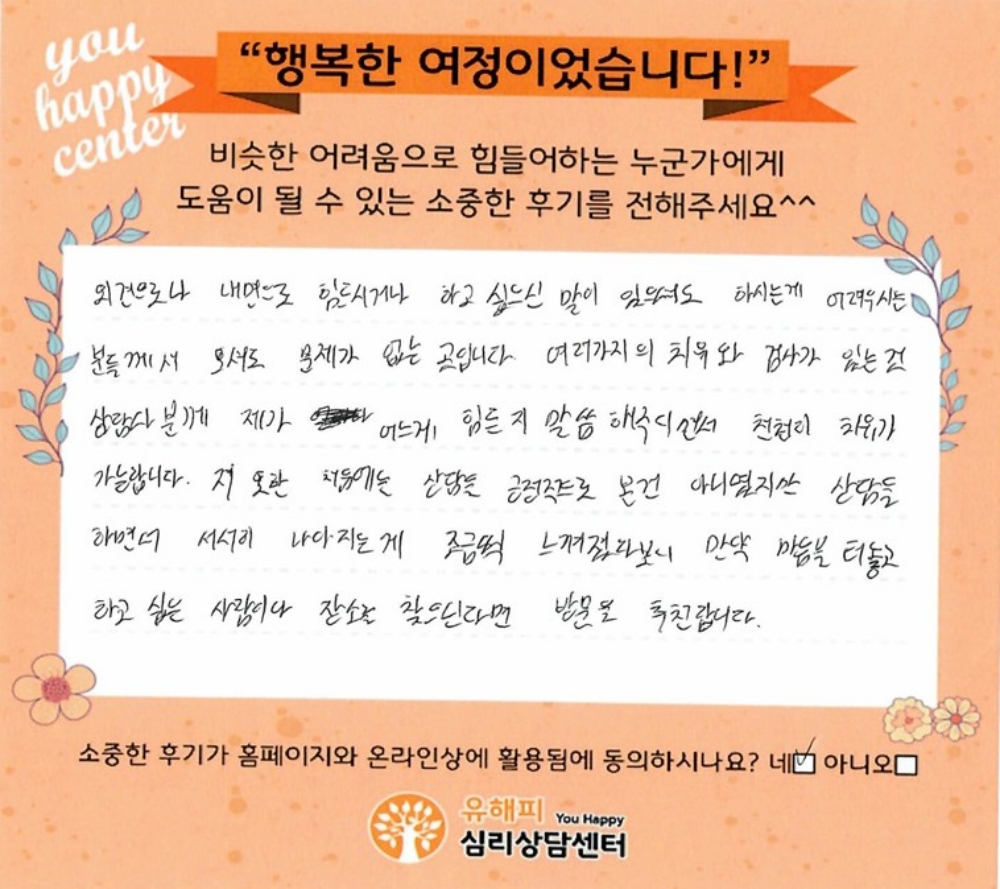 you
happy
center
“행복한 여정이었습니다!”
비슷한 어려움으로 힘들어하는 누군가에게
도움이 될 수 있는 소중한 후기를 전해주세요^^
외견으로나 내면으로 힘드시거나 하고 싶으신 말이 있으셔도 하시는게 어려우시는
분들께서 오셔도 문제가 없는 곳입니다. 여러가지의 치유와 검사가 있는건
상담사분께 제가 어느게 힘든지 말씀해주시면서 천천히 치유가
가능합니다. 저 또한 처음에는 상담을 긍정적으로 본건 아니였지만 상담을
하면서 서서히 나아지는게 조금씩 느껴졌다보니 만약 마음을 터놓고
하고 싶은 사람이나 장소를 찾으신다면 방문을 추천합니다.
소중한 후기가 홈페이지와 온라인상에 활용됨에 동의하시나요? 네☑ 아니오☐
유해피 You Happy
심리상담센터